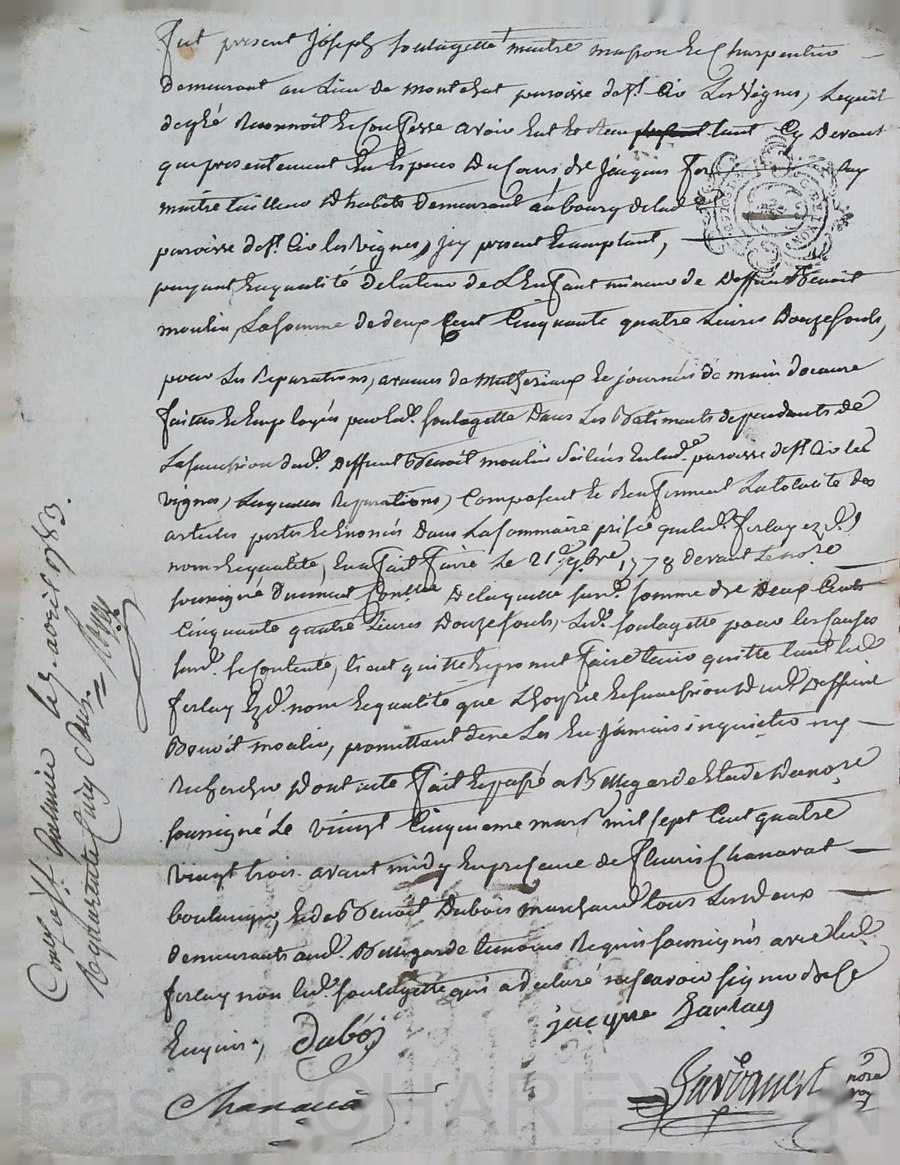 Fut present Joseph soulagette maitre masson et Charpentier
demeurant au Lieu de montchat paroisse de st. Cir Les vignes, Lequel
de gré Reconnoit et Confesse avoir Eut et Receu tant Cy devant
que presentement En Especes du Cours de Jacques Ferlay
maitre tailleur d'habits demeurant au bourg de lad
paroisse de st. Cir les vignes, icy present Acceptant,
payant En qualité de tuteur de L'Enfant mineur de deffunt Benoit
moulin, La somme de deux Cent Cinquante quatre Livres Douze souls,
pour les Reparations, avances de Matheriaux et journées de main d'oeuvre
faittes et Employées par led. soulagette Dans Les Batiments dependants de
La succession dud. deffunt Benoit moulin Scitués En lad. paroisse de st. Cir les
vignes, Lesquelles Reparations, Composent et Renferment La totalité des
articles portés et Enoncés Dans La sommaire prisée que led. ferlay ezd.
noms et qualité, En a fait faire Le 21e. 9bre. 1778 devant Le nore
soussigné duement Conllée De laquelle susd. somme de Deux Cents
Cinquante quatre Livres Douze souls, Led. soulagette pour les causes
susd. se Contente, En quitte et promet faire tenir quitte tant led.
ferlay Ezd. nom et qualité que L'hoyrie et succession dud. deffunt
Benoit moulin, promettant de ne Les En jamais inquietter ny
Rechercher Dont acte fait et passé a Bellegarde Etude du nore
soussigné Le vingt Cinquieme mars mil sept Cent quatre
vingt trois avant midy En presence de fleuris Chanavat
boulanger, et de Benoit Dubois marchand tous Les deux
demeurants aud. Bellegarde temoins Requis soussignés avec led.
ferlay non led. soulagette qui a declaré ne savoir signer de ce
Enquis,
Duboy
jacque Farlay
Chanavat
nore
roy
Con. a st. Galmier le avril 1783.